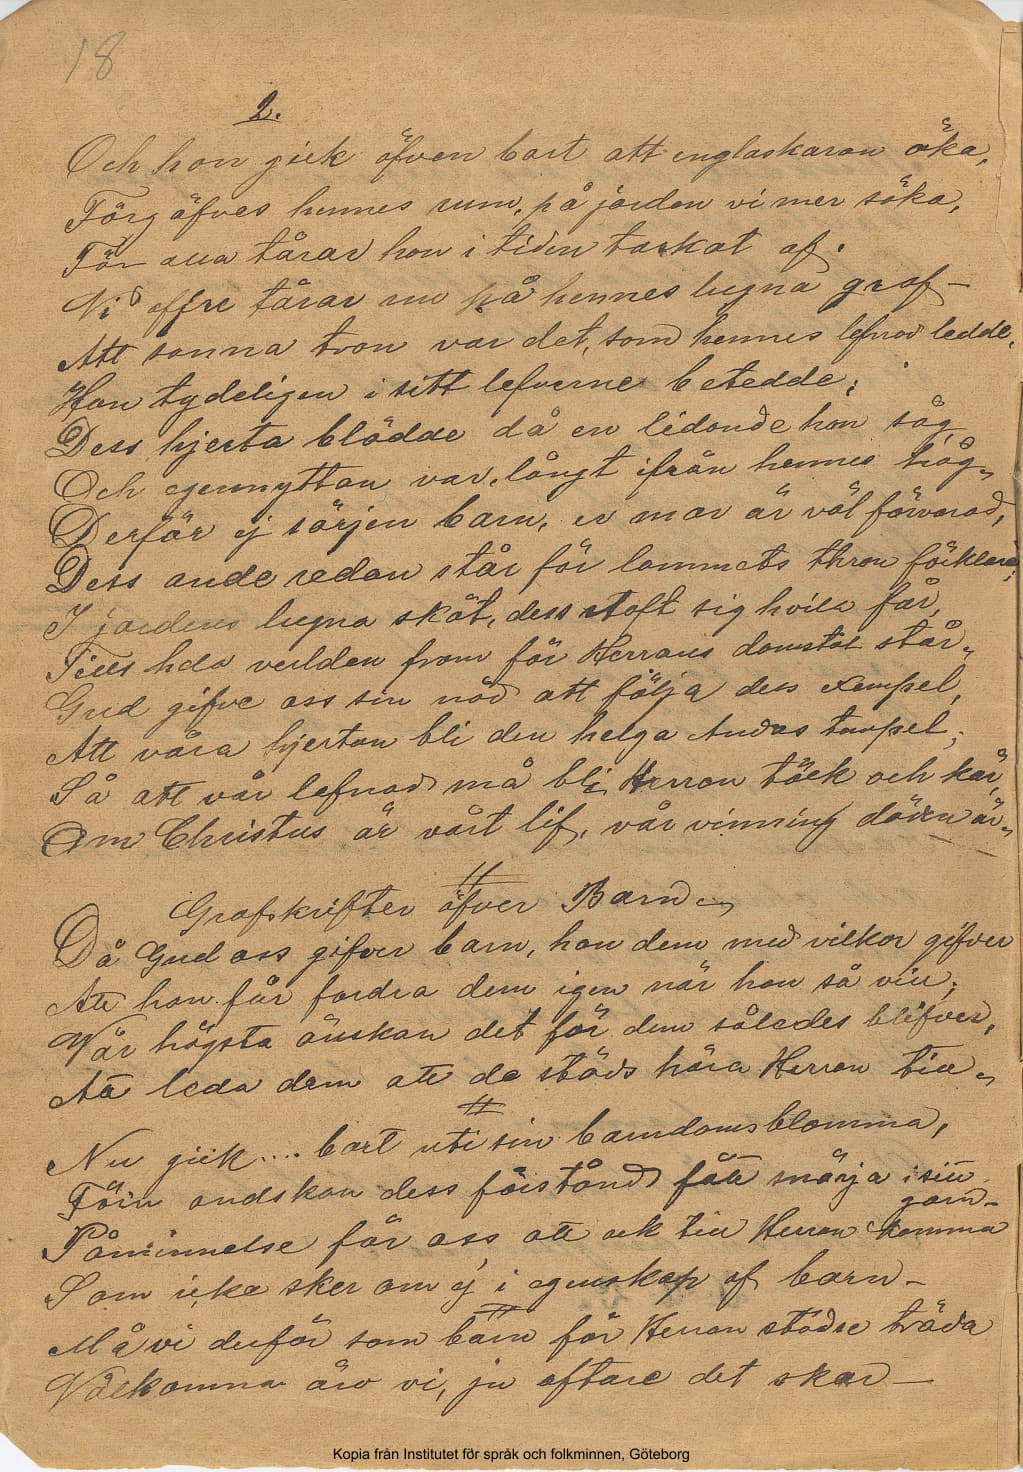 18
2.
Och hon gick äfven bort att englaskaran öka,
Förgäfves hennes rum, på jorden vi mer söka,
För alla tårar hon i tiden torkat af.
Vi offre tårar nu på hennes lugna graf —
Att sanna tron var det, som hennes lefnad ledde,
Hon tydeligen i sitt lefverne betedde;
Dess hjerta blödde då en lidande hon såg
Och egennyttan var, långt ifrån hennes håg„
Derför ej sörjen barn, er mor är väl förvarad,
Dess ande redan står för lammets thron förklarad;
I jordens lugna sköt, dess stoft sig hvila får,
Tills hela verlden fram för Herrans domstol står„
Gud gifve oss sin nåd att följa dess exempel,
Att våra hjertan bli den helga Andas tempel;
Så att vår lefnad må bli Herran täck och kär,
Om Christus är vårt lif, vår vinning döden är„
Grafskrifter öfver Barn
Då Gud oss gifver barn, han dem med vilkor gifver
Att han får fordra dem igen när han så vill;
Vår högsta önskan det för dem således blifver,
Att leda dem att de städs höra Herren till„
Nu gick .... bort uti sin barndomsblomma,
Förin ondskan dess förstånd fått snärja i sitt
garn —
Påminnelse för oss att ock till Herren komma
Som icke sker om ej i egenskap af barn —
Må vi derför som barn för Herran städse träda
Välkomna äro vi, ju oftare det sker —
Kopia från Institutet för språk och folkminnen, Göteborg